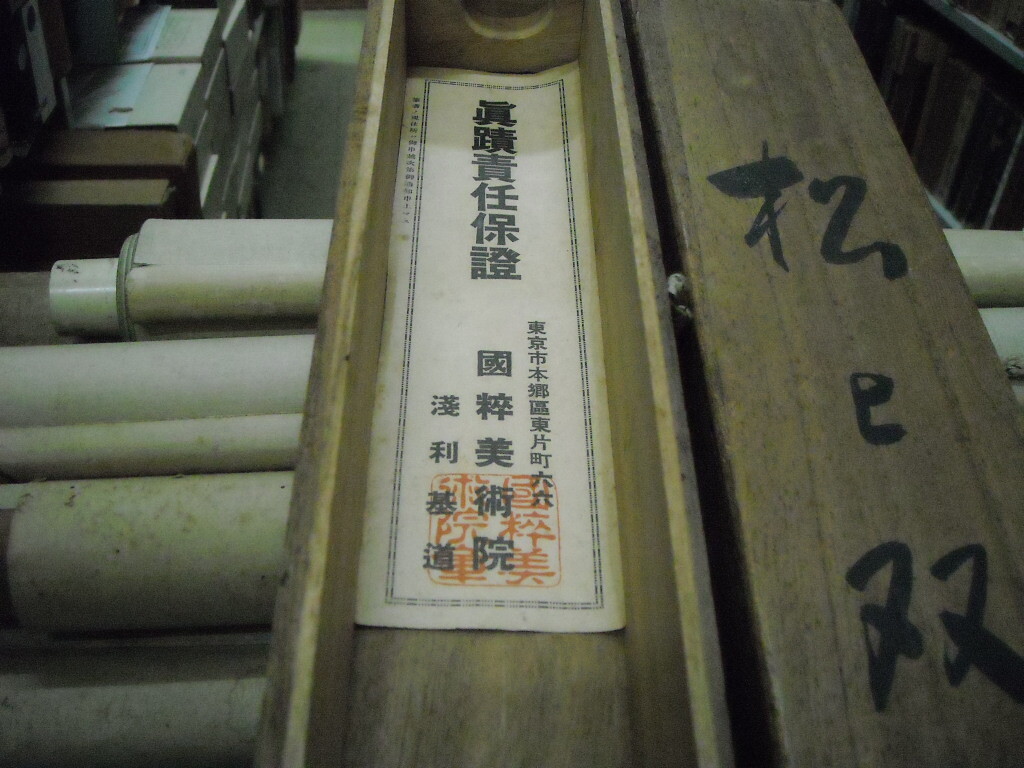 眞蹟責任保證
東京市本郷區東片町六六
國粹美術院
淺利基道
國粹美
術院
松
双